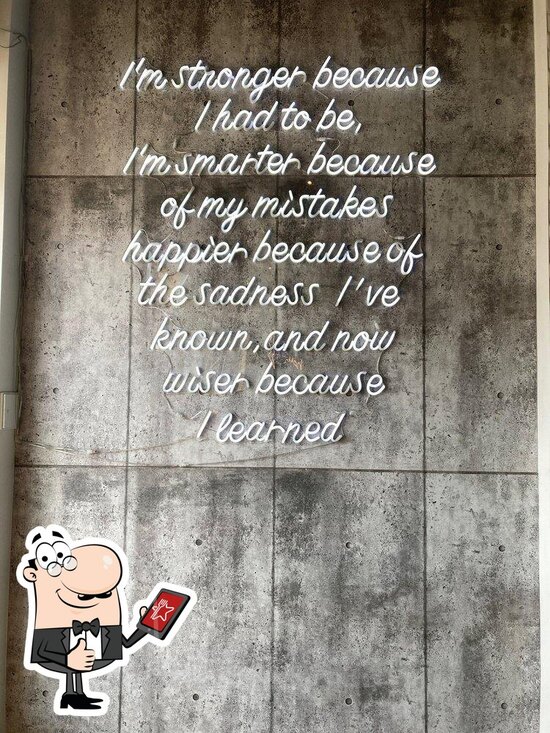 I'm stronger because
I had to be,
I'm smarter because
of my mistakes
happier because of
the sadness I've
known, and now
wiser because
I learned